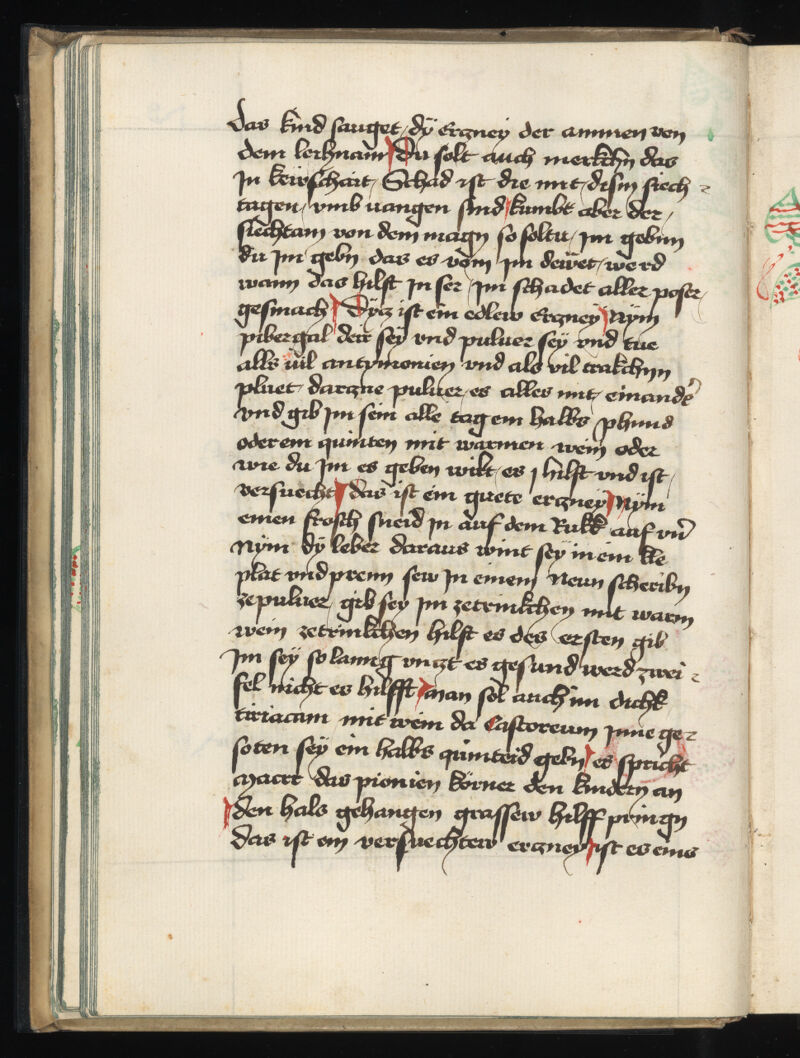 das kind sauget dy erczney der ammen von
dem leichnam Du solt auch merkchn das
In keüschait Schad ist die mit disin siech
tagen vmb uangen sind kumbt aber der
siechtam von dem magn so soltu im gebnn
du im gebn das es vom im dewet werd
wann das hilft in ser im schadet aller poser
gesmach Dycz ist ein edlew erczney Nym
pibergal derr sey vnd puluer sey vnd tue
alls uil antymonien vnd als vil trakchnn
pluet darczue puluer es alles mit einander
vnd gib im sein alle tag ein halbs phund
oder ein quinten mit warmen wein oder
wie du im es geben wilt es hilft vnd ist
versuecht das ist ein guete erczney Nym
einen frosch sneid in auf dem Rukk auf vn̄
Nym dy leber daraus wint sey in ein kle
plat vnd prenn sew In einem Neun scheribn
ze puluer gib sey im zetrinkchen mit warm
wein zetrinkchen hilft es des ersten gib
Im sey so lanng vnczt es gesund werd zwei
fel nicht es hilfft man sol auch im dickh
tiriacam mit wein da Castoreum Inne ge
soten sey ein halbs quinteid gebn es spricht
macer das pionien körner den kindern an
den hals gehangen grassew hilff pringn
das ist ein versuechtew erczney ist es eins